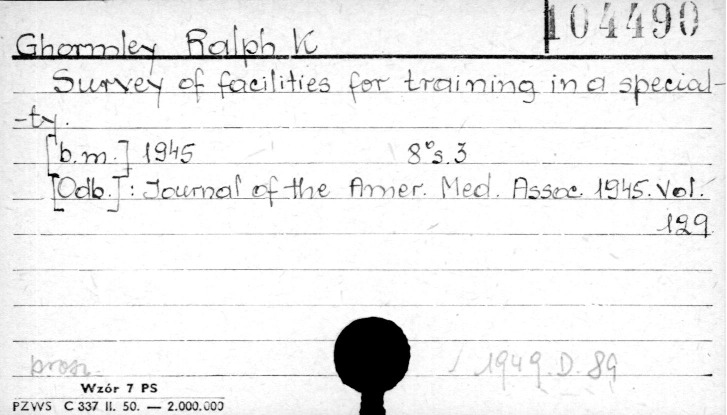 104490
Ghormley Ralph K
Survey of facilities for training in a special-
-ty.
[b.m.] 1945 8°s. 3
[Odb.]: Journal of the Amer. Med. Assoc. 1945. Vol.
129.
brosz. 1949. D. 89
Wzór 7 PS
PZWS C 337 II. 50. — 2.000.000